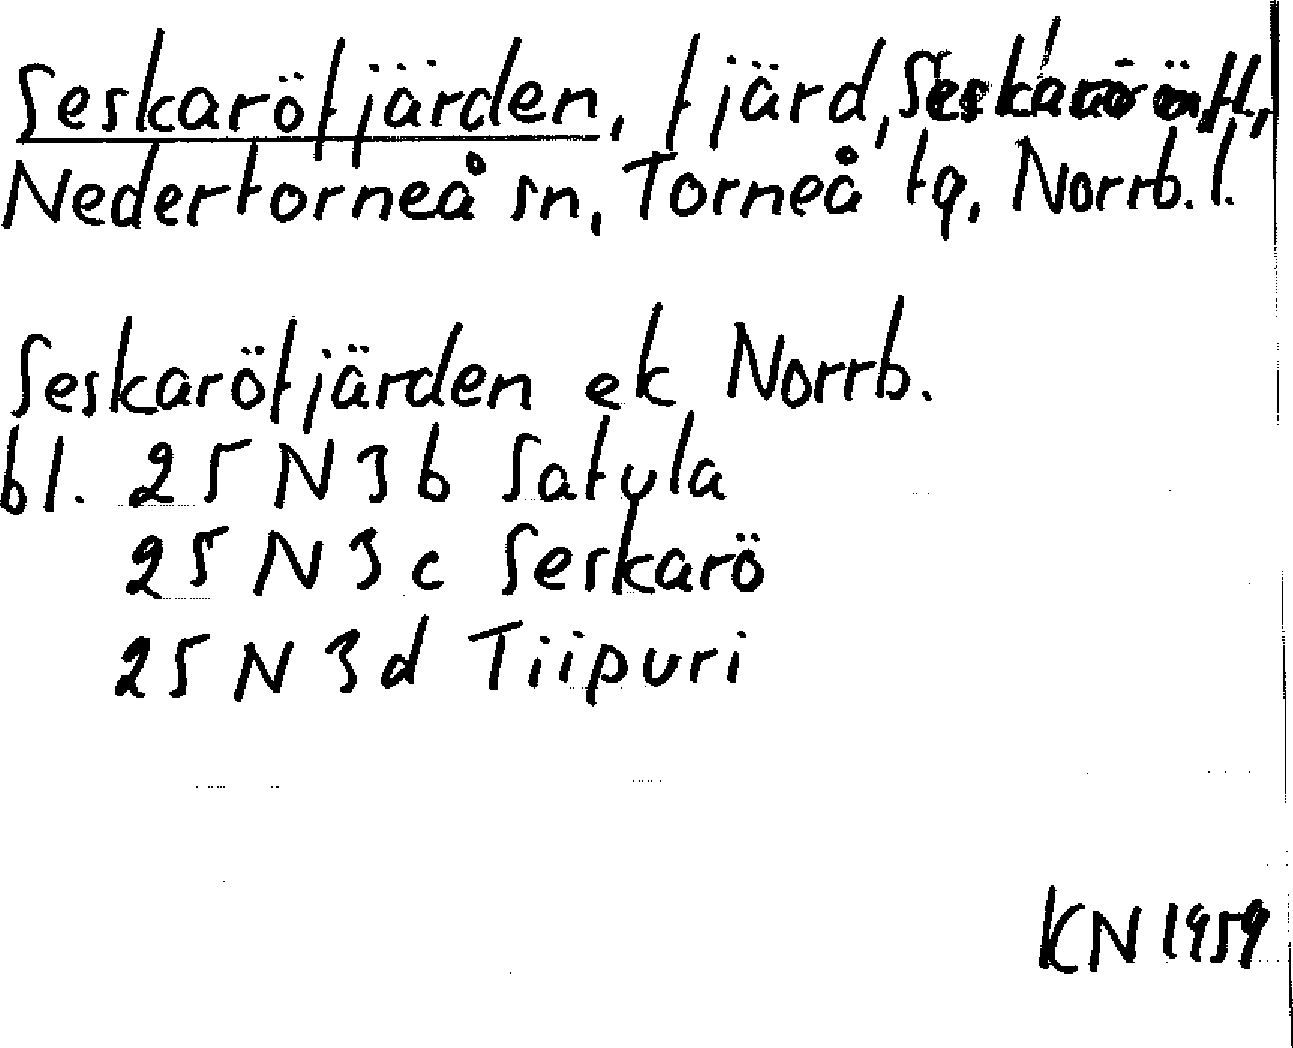 Seskaröfjärden, fjärd, Seskarö
Nedertorneå sn, Torneå tg, Norrb. l.
Seskaröfjärden ek Norrb.
bl. 25 N 3 b Satula
25 N 3 c Seskarö
25 N 3 d Tiipuri
KN 1959